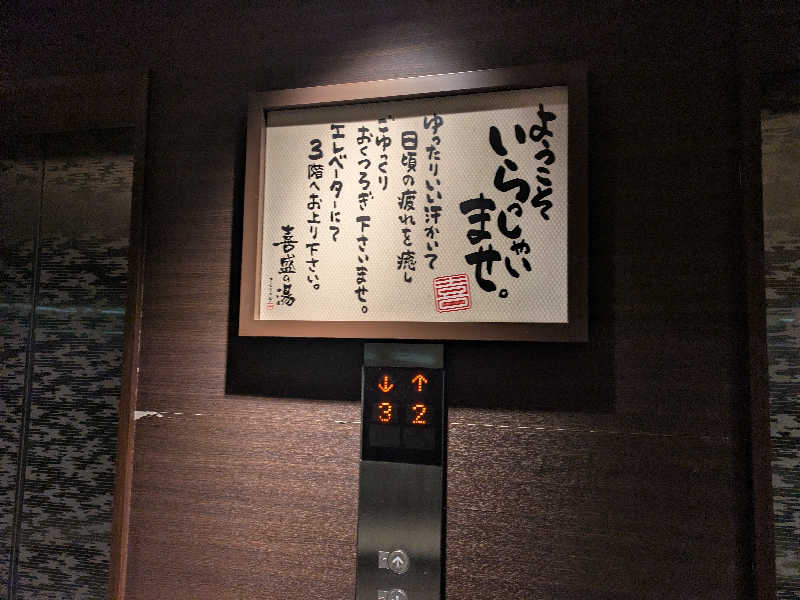 ようこそ
いらっしゃい
ませ。
ゆったりいい汗かいて
日頃の疲れを癒し
ごゆっくり
おくつろぎ下さいませ。
エレベーターにて
3階へお上り下さい。
喜盛の湯
喜
↓ ↑
3 2